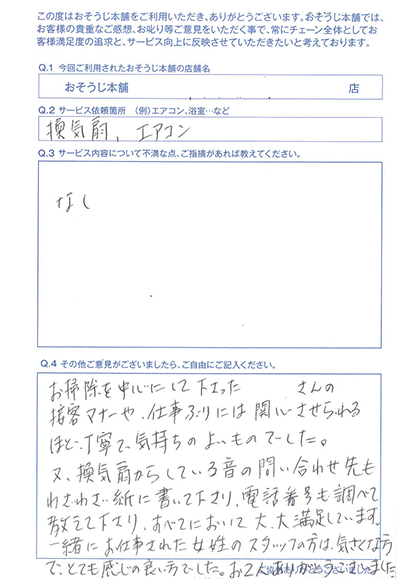 この度はおそうじ本舗をご利用いただき、ありがとうございます。おそうじ本舗では、
お客様の貴重なご感想、お叱り等ご意見をいただく事で、常にチェーン全体としてお
客様満足度の追求と、サービス向上に反映させていただきたいと考えております。
Q.1 今回ご利用されたおそうじ本舗の店舗名
おそうじ本舗 店
Q.2 サービス依頼箇所 (例)エアコン、浴室…など
換気扇、エアコン
Q.3 サービス内容について不満な点、ご指摘があれば教えてください。
なし
Q.4 その他ご意見がございましたら、ご自由にご記入ください。
お掃除を中心にして下さった さんの
接客マナーや、仕事ぶりには関心させられる
ほど、丁寧で、気持ちのよいものでした。
又、換気扇からしている音の問い合わせ先も
わざわざ紙に書いて下さり、電話番号も調べて
教えて下さり、すべてにおいて大、大満足しています。
一緒にお仕事された女性のスタッフの方は、気さくな方
で、とても感じの良い方でした。お2人ありがとうございました